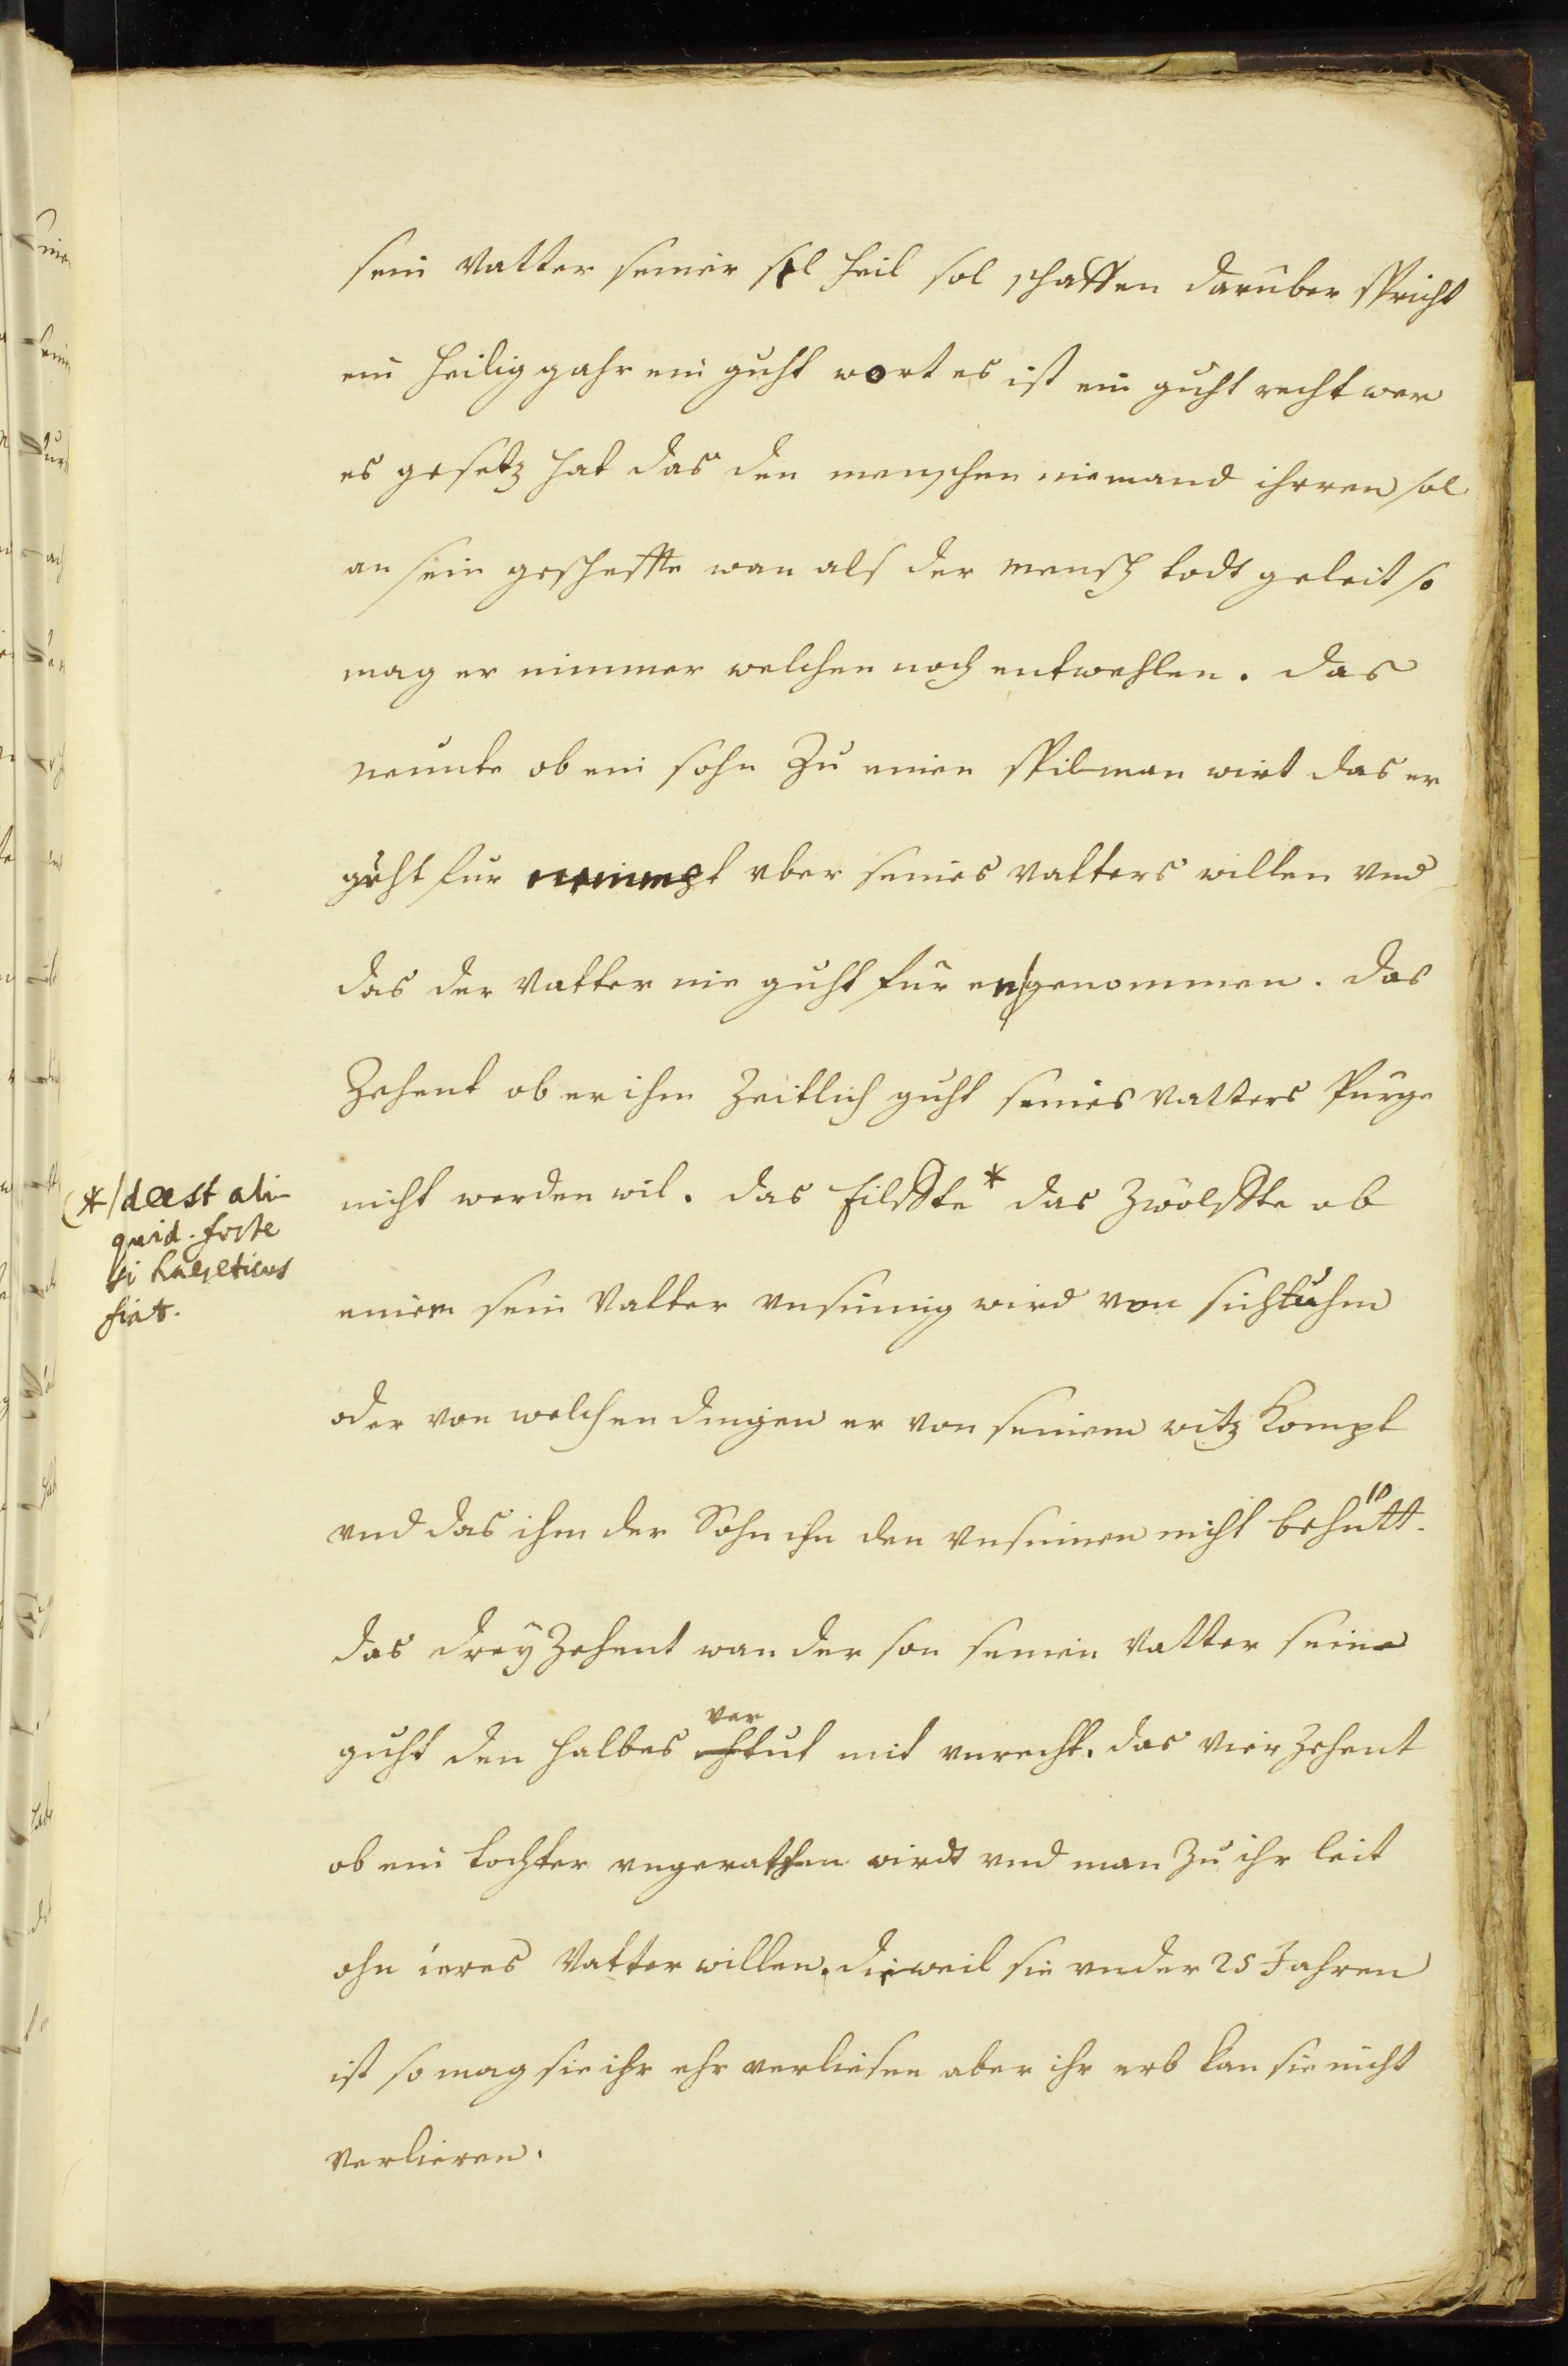 sein Vatter seiner sel heil sol schaffen darüber spricht
ein heilig gahr ein guht wort es ist ein guht recht wer
es gesetz hat das den menschen niemand ihrren sol
an sein gescheffte wan als der mensch todt geleit so
mag er nimmer welchen noch entwehlen. das
neunte ob ein sohn Zu einen spilman wirt das er
guht für nimmpt vber seines Vatters willen vnd
das der Vatter nie guht für en genommen. das
Zehent ob er ihm Zeitlich guht seines Vatters Purge
nicht werden wil. das Eilffte * das Zwölffte ob
einem sein Vatter vnsinnig wird von sichtuhm
oder von welchen dingen er von seinem witz kompt
vnd das ihm der Sohn ihn den vnsinnen nicht behütt.
das dreyZehent wan der son seinen Vatter seine
guht den halbes vertut mit vnrecht. das vierZehent
ob ein tochter vngerathen wirdt vnd man Zu ihr leit
ohn ieres Vatter willen. dieweil sie vnder 25 Jahren
ist so mag sie ihr ehr verliesen aber ihr erb kan sie nicht
verlieren.
(*/ deest ali-
quid. forte
si haereticus
fiat.